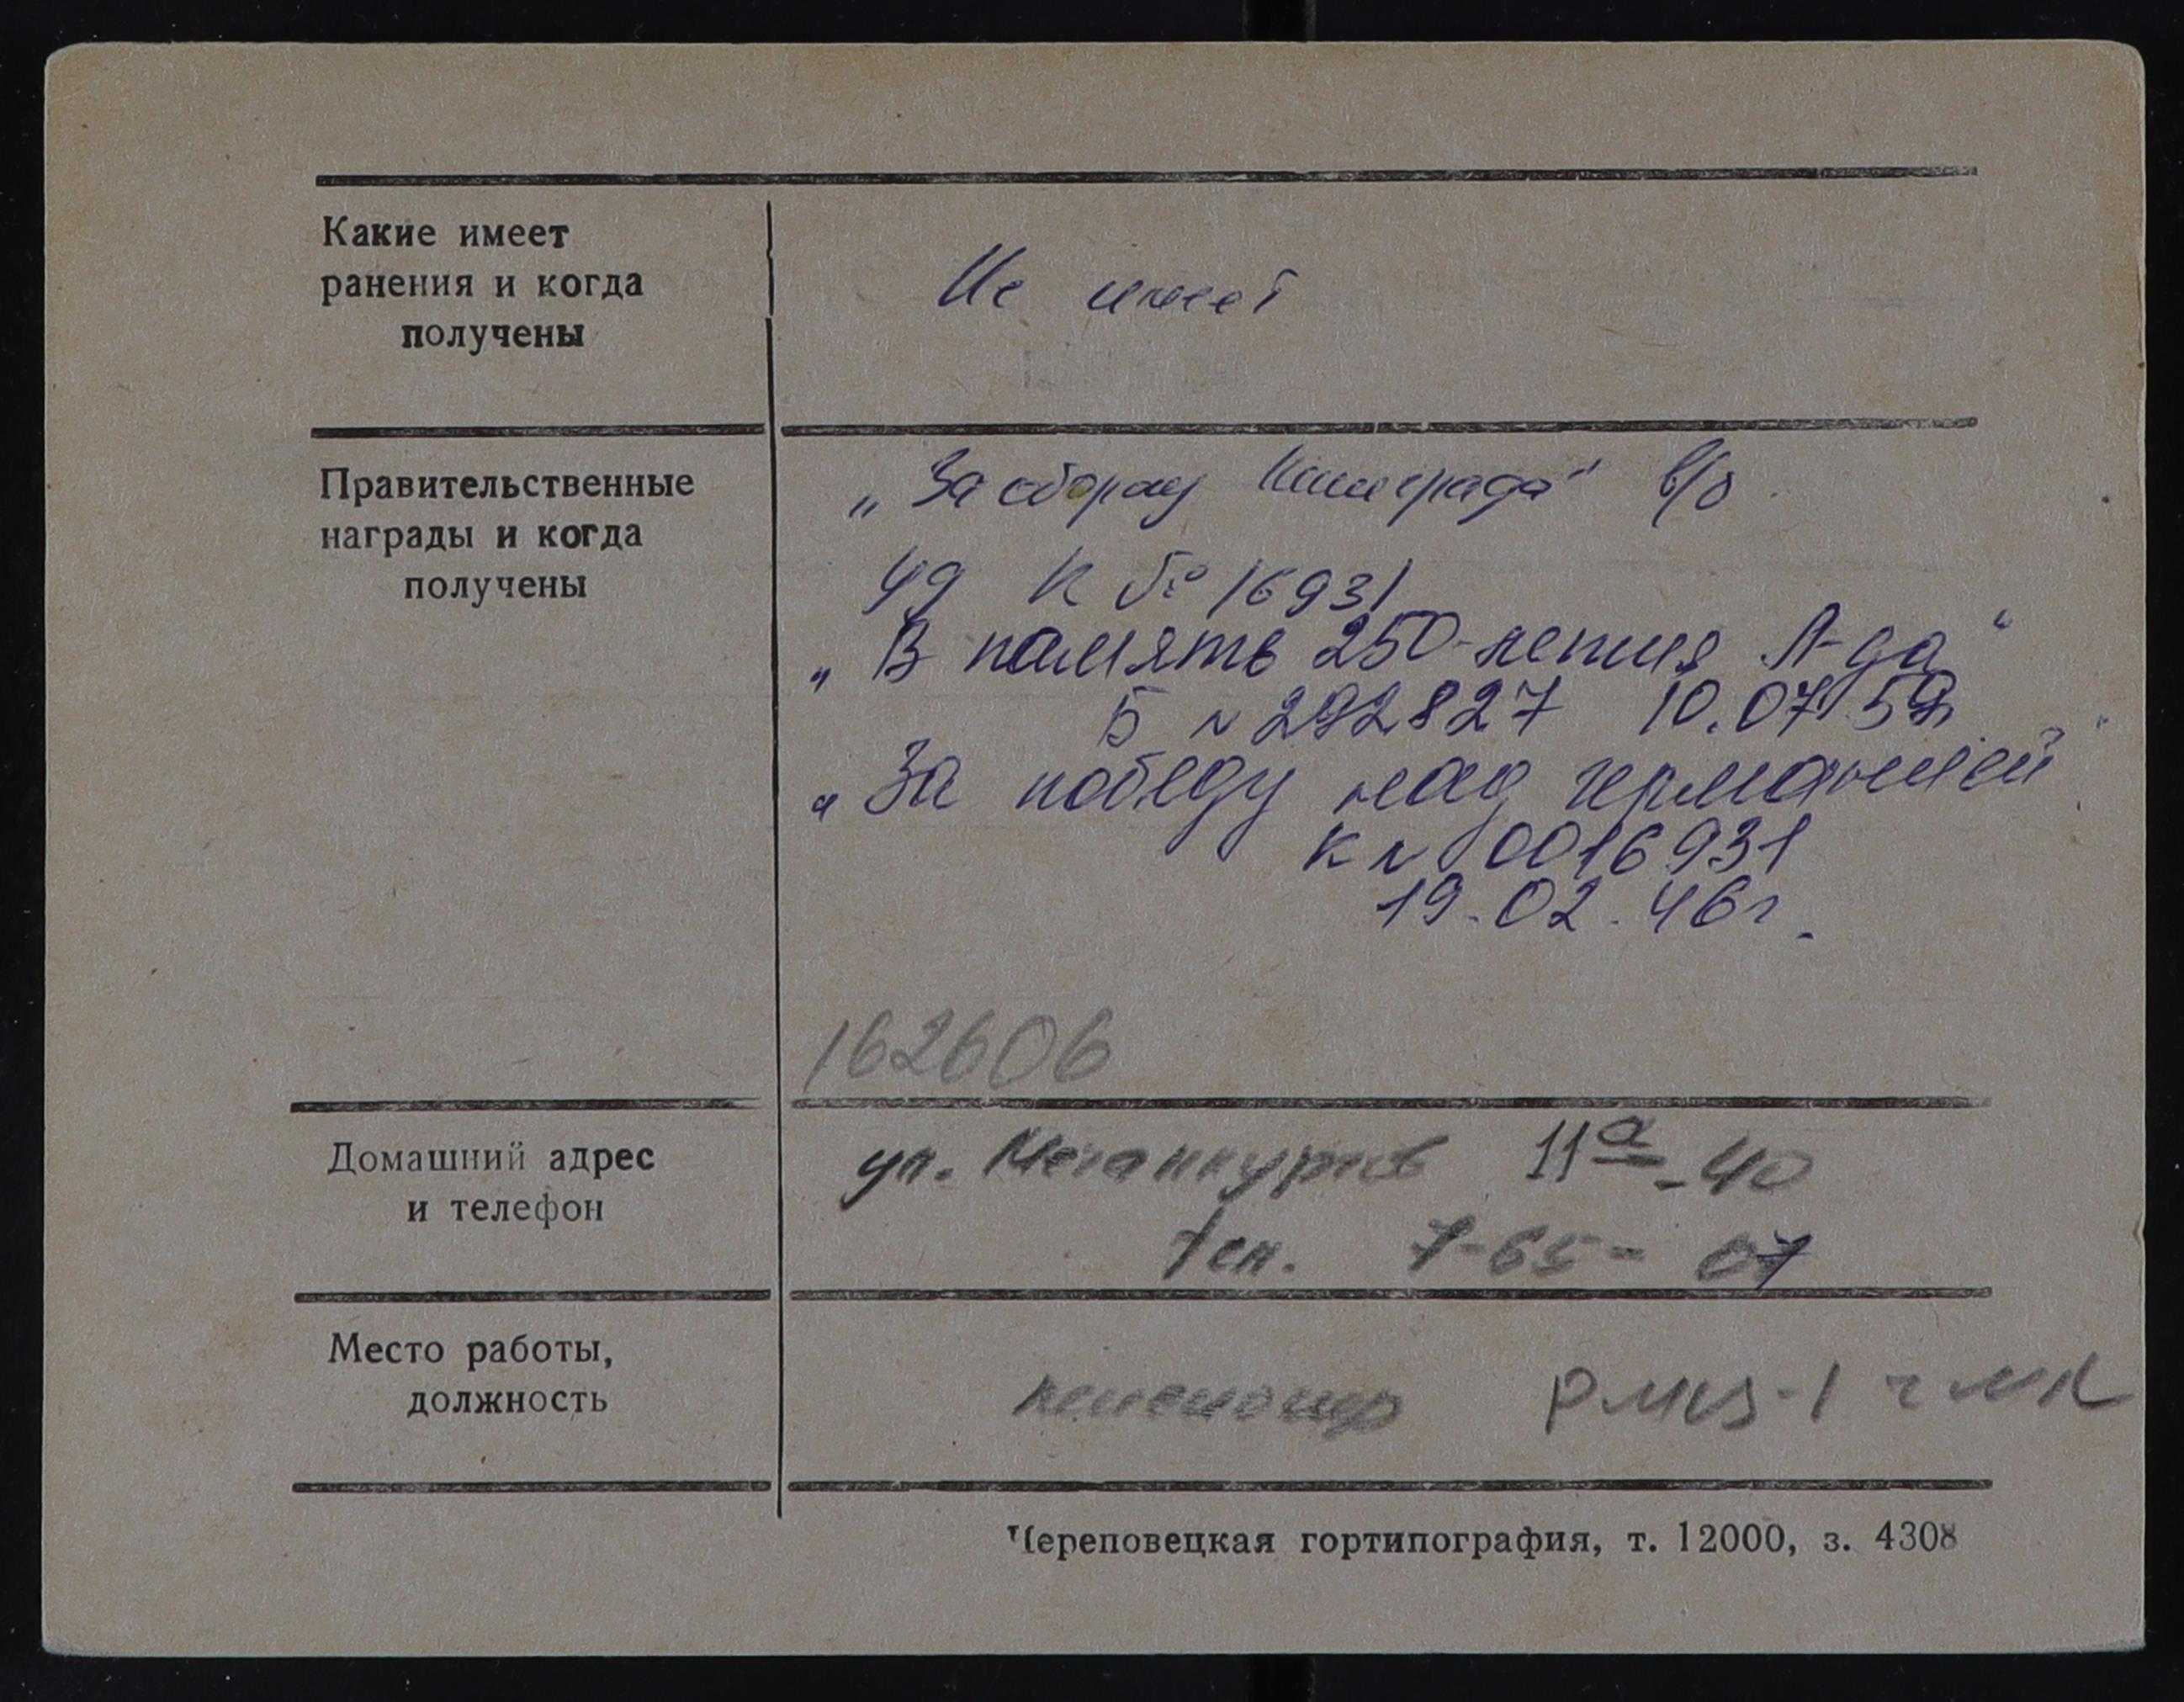 Какие имеет
ранения и когда
получены
Не имеет
Правительственные
награды и когда
получены
„За оборону Ленинграда" в/о
уд К № 16931
„В память 250-летия Л-да"
Б № 292827 10.07.59
„За победу над германией"
К № 0016931
19.02.46г.
162606
Домашний адрес
и телефон
ул. Металлургов 11а-40
тел. 7-65-07
Место работы,
должность
пенсионер РМЦ-1 ЧМК
Череповецкая гортипография, т. 12000, з. 4308